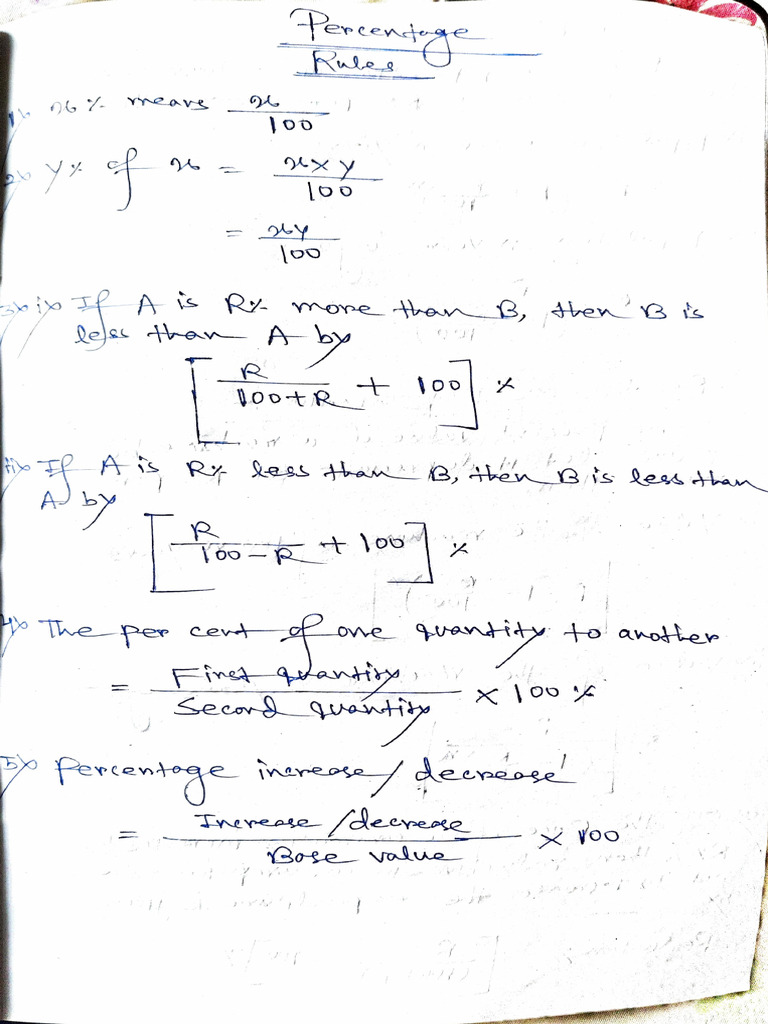 Percentage
Rules
1) x% means x/100
2) y% of x = x×y/100
= xy/100
3) i) If A is R% more than B, then B is
less than A by
[R/100+R + 100] %
ii) If A is R% less than B, then B is less than
A by
[R/100-R + 100] %
4) The per cent of one quantity to another
= First quantity/Second quantity × 100 %
5) Percentage increase/decrease
= Increase/decrease/Base value × 100